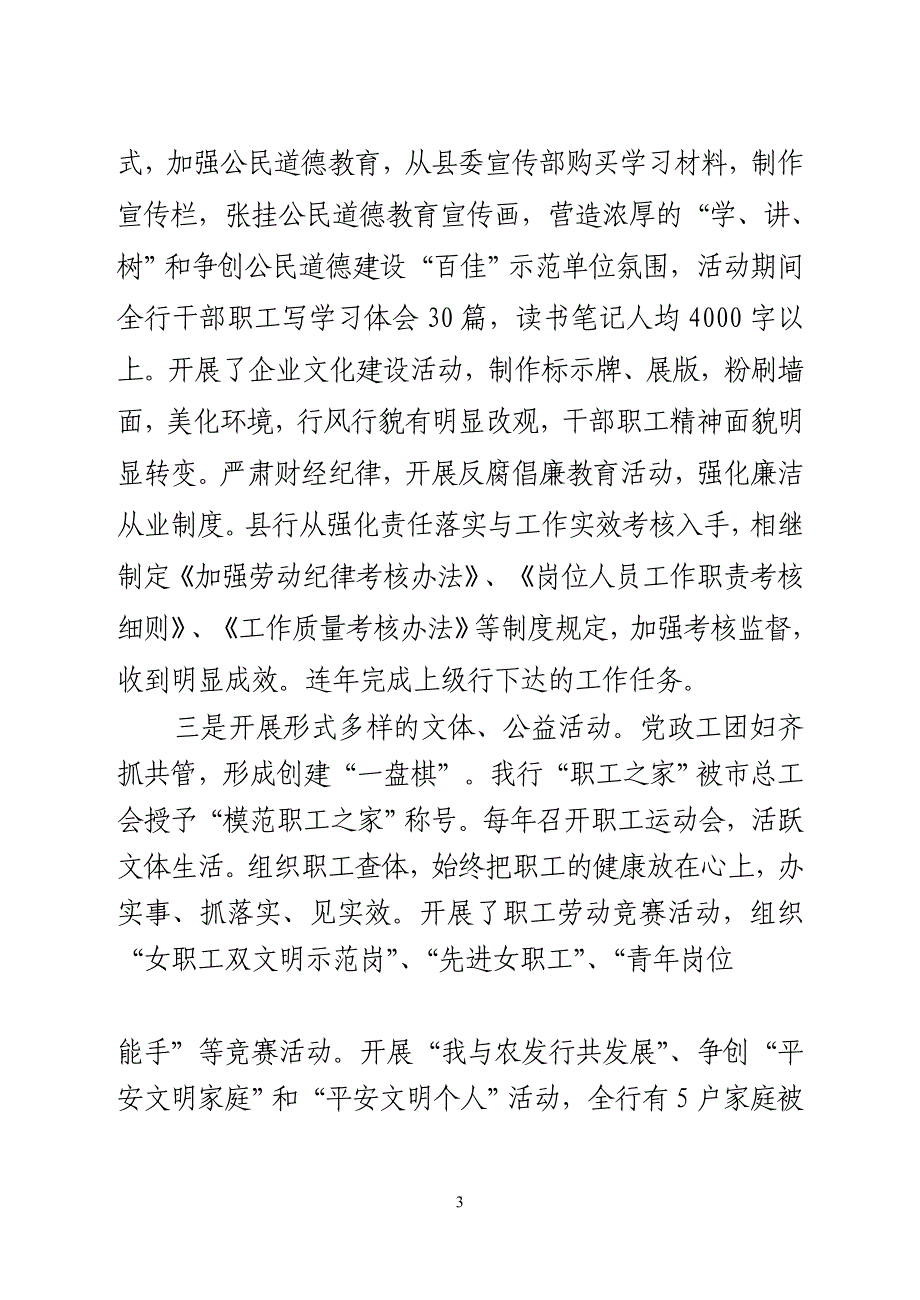 式，加强公民道德教育，从县委宣传部购买学习材料，制作
宣传栏，张挂公民道德教育宣传画，营造浓厚的“学、讲、
树”和争创公民道德建设“百佳”示范单位氛围，活动期间
全行干部职工写学习体会 30 篇，读书笔记人均 4000 字以
上。开展了企业文化建设活动，制作标示牌、展版，粉刷墙
面，美化环境，行风行貌有明显改观，干部职工精神面貌明
显转变。严肃财经纪律，开展反腐倡廉教育活动，强化廉洁
从业制度。县行从强化责任落实与工作实效考核入手，相继
制定《加强劳动纪律考核办法》、《岗位人员工作职责考核
细则》、《工作质量考核办法》等制度规定，加强考核监督，
收到明显成效。连年完成上级行下达的工作任务。
三是开展形式多样的文体、公益活动。党政工团妇齐
抓共管，形成创建“一盘棋”。我行“职工之家”被市总工
会授予“模范职工之家”称号。每年召开职工运动会，活跃
文体生活。组织职工查体，始终把职工的健康放在心上，办
实事、抓落实、见实效。开展了职工劳动竞赛活动，组织
“女职工双文明示范岗”、“先进女职工”、“青年岗位
能手”等竞赛活动。开展“我与农发行共发展”、争创“平
安文明家庭”和“平安文明个人”活动，全行有 5 户家庭被
3